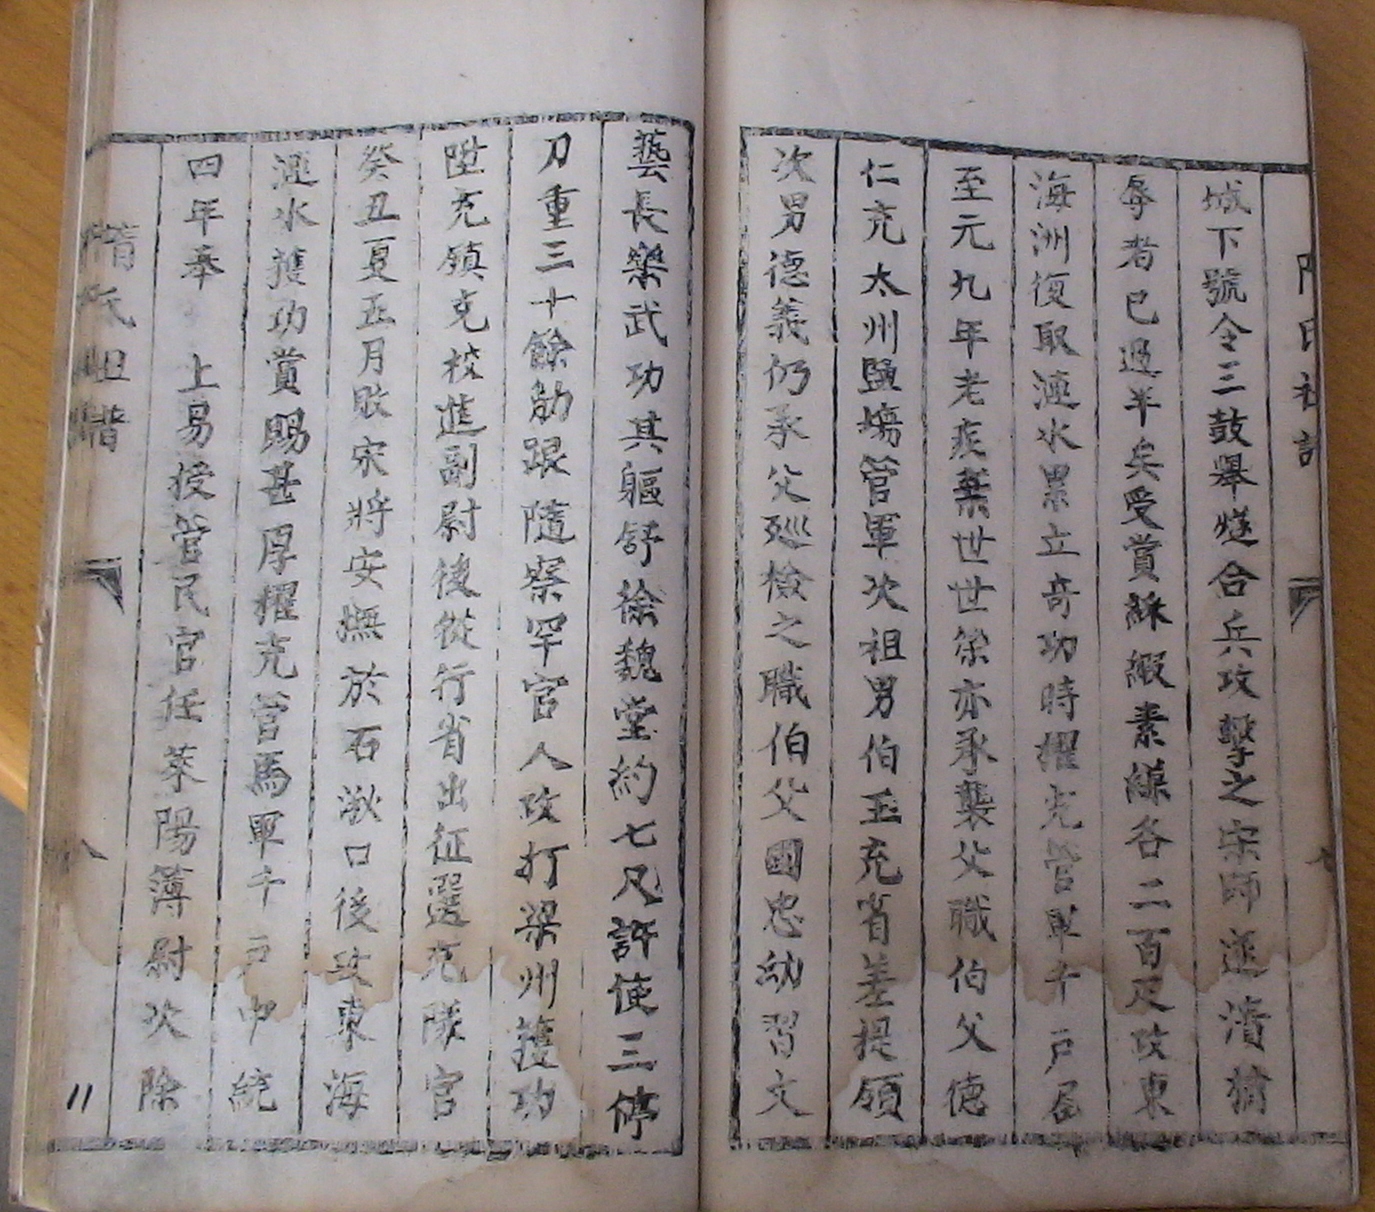 城下號令三鼓舉燧合兵攻擊之宋師遂潰猶
辱者已過半矣受賞綵緞素綠各二百疋攻東
海洲復取漣水累立奇功時擢充管軍千戶屆
至元九年老疾棄世世榮亦承襲父職伯父德
仁充太州鹽塲管軍次祖男伯玉充省差提領
次男德義仍承父廵檢之職伯父國忠幼習文
藝長樂武功其軀舒徐魏堂約七尺許使三停
刀重三十餘觔跟隨察罕官人攻打梁州獲功
陞充領克校進副尉後從行省出征選充隊官
癸丑夏正月敗宋將安撫於石湫口後攻東海
漣水獲功賞賜甚厚擢充管馬軍千戶中統
四年奉 上易授管民官任萊陽簿尉次除
隋氏祖譜
八
11